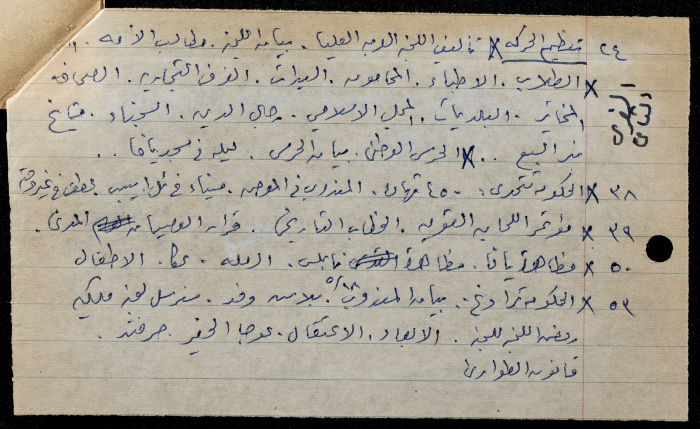 ٢٤ تنظيم الحركة X تأليف اللجنة العربية العليا . بيان اللجنة . مطالب الأمة .
X الطلاب . الاطباء . المحامون . السيدات . الغرف التجارية . الصحافة
المخاتير . البلديات . المجلس الاسلامي . رجال الدين . السجناء . مشايخ
بئر السبع .. X الحرس الوطني . بيان الحرس . ليلة في مسجد يافا ..
٣٨ X الحكومة تتحدى : ٤٥٠٠ شهادة . المندوب في الموصل . ميناء في تل ابيب
٣٩ X مؤتمر اللجان القومية . الخطاب التاريخي . قرار العصيان المدني .
٥٠ X مظاهرة يافا . مظاهرة نابلس . الرملة . عكا . الاطفال
٥٣ X الحكومة تراوغ : بيان المندوب ٥/١٨ . بلاس وفد . سنرسل لجنة ملكية
رفض اللجنة للجنة . الابعاد . الاعتقال . عوجا الحفير . صرفند .
قانون الطوارئ
الثورة